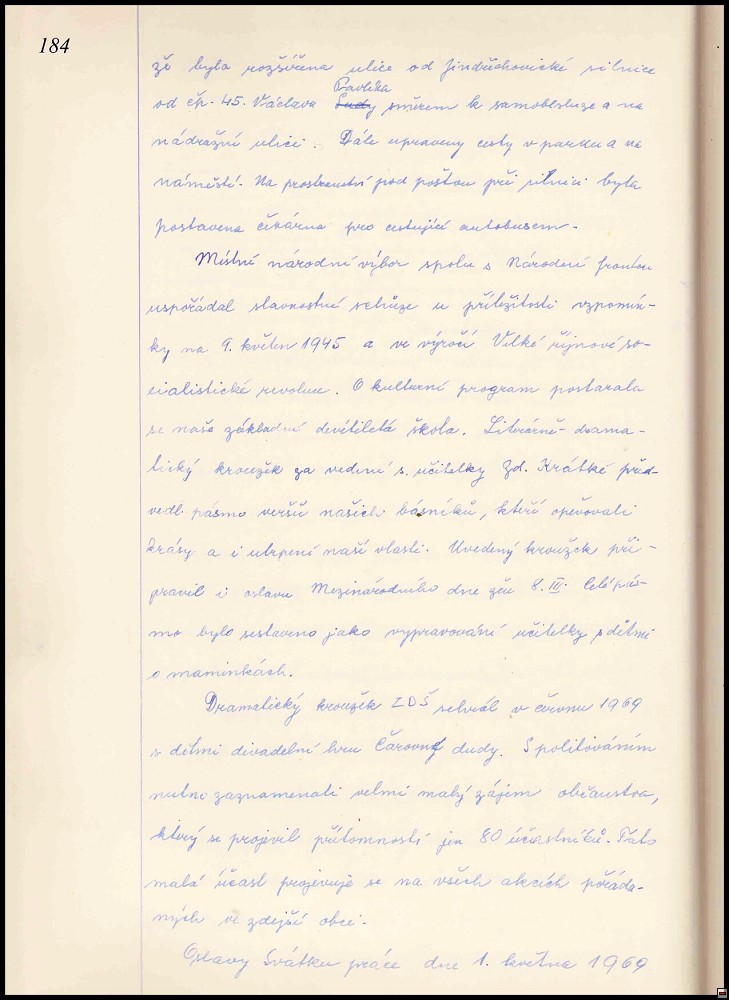 184
že byla rozšířena ulice od Jindřichovické silnice
Pavlíka
od čp. 45. Václava směrem k samoobsluze a na
nádražní ulici. Dále upraveny cesty v parku a na
náměstí. Na prostranství pod poštou při silnici byla
postavena čekárna pro cestující autobusem.
Místní národní výbor spolu s Národní frontou
uspořádal slavnostní schůze u příležitosti vzpomín-
ky na 9. květen 1945 a ve výročí Velké říjnové so-
cialistické revoluce. O kulturní program postarala
se naše základní devítiletá škola. Literárně-drama-
tický kroužek za vedení s. učitelky Zd. Krátké před-
vedl pásmo veršů našich básníků, kteří opěvovali
krásy a i utrpení naší vlasti. Uvedený kroužek při-
pravil i oslavu Mezinárodního dne žen 8. III. Celé pás-
mo bylo sestaveno jako vypravování učitelky s dětmi
o maminkách.
Dramatický kroužek ZDŠ sehrál v červnu 1969
s dětmi divadelní hru Čarovné dudy. S politováním
nutno zaznamenati velmi malý zájem občanstva,
který se projevil přítomností jen 80 účastníků. Tato
malá účast projevuje se na všech akcích pořáda-
ných ve zdejší obci.
Oslavy Svátku práce dne 1. května 1969